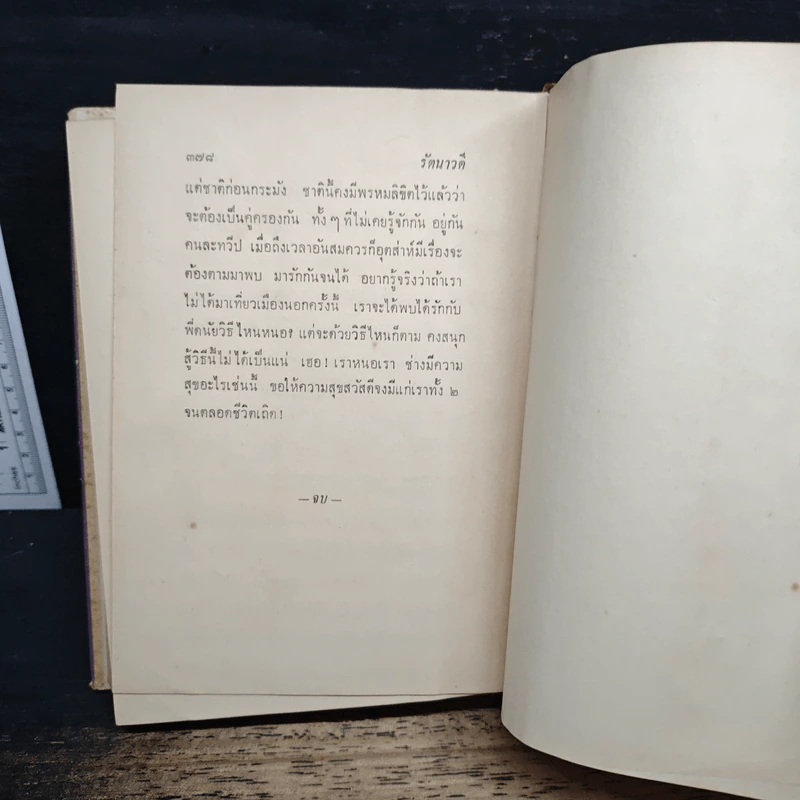 ๓๗๘ รัตนาวดี
แต่ชาติก่อนกระมัง ชาตินี้คงมีพรหมลิขิตไว้แล้วว่า
จะต้องเป็นคู่ครองกัน ทั้ง ๆ ที่ไม่เคยรู้จักกัน อยู่กัน
คนละทวีป เมื่อถึงเวลาอันสมควรก็อุตส่าห์มีเรื่องจะ
ต้องตามมาพบ มารักกันจนได้ อยากรู้จริงว่าถ้าเรา
ไม่ได้มาเที่ยวเมืองนอกครั้งนี้ เราจะได้พบได้รักกับ
พี่ดนัยวิธีไหนหนอ? แต่จะด้วยวิธีไหนก็ตาม คงสนุก
สู้วิธีนี้ไม่ได้เป็นแน่ เฮอ! เราหนอเรา ช่างมีความ
สุขอะไรเช่นนี้ ขอให้ความสุขสวัสดีจงมีแก่เราทั้ง ๒
จนตลอดชีวิตเถิด!
— จบ —